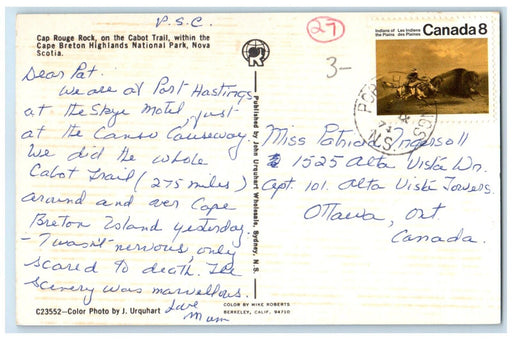 P.S.C.
27
3-
Cap Rouge Rock, on the Cabot Trail, within the
Cape Breton Highlands National Park, Nova
Scotia.
Dear Pat.
We are at Port Hastings
at the Skye Motel, just
at the Canso Causeway.
We did the whole
Cabot Trail (275 miles)
around and over Cape
Breton Island yesterday.
- I wasn't nervous, only
scared to death. The
scenery was marvellous.
Love
Mum
C23552-Color Photo by J. Urquhart
Published by John Urquhart Wholesale, Sydney, N.S.
COLOR BY MIKE ROBERTS
BERKELEY, CALIF. 94710
Indians of the Plains
Les Indiens des Plaines
Canada 8
N.S.
Miss Patricia Ingersoll
1525 Alta Vista Dr.
Apt. 101. Alta Vista Towers.
Ottawa, Ont
Canada.